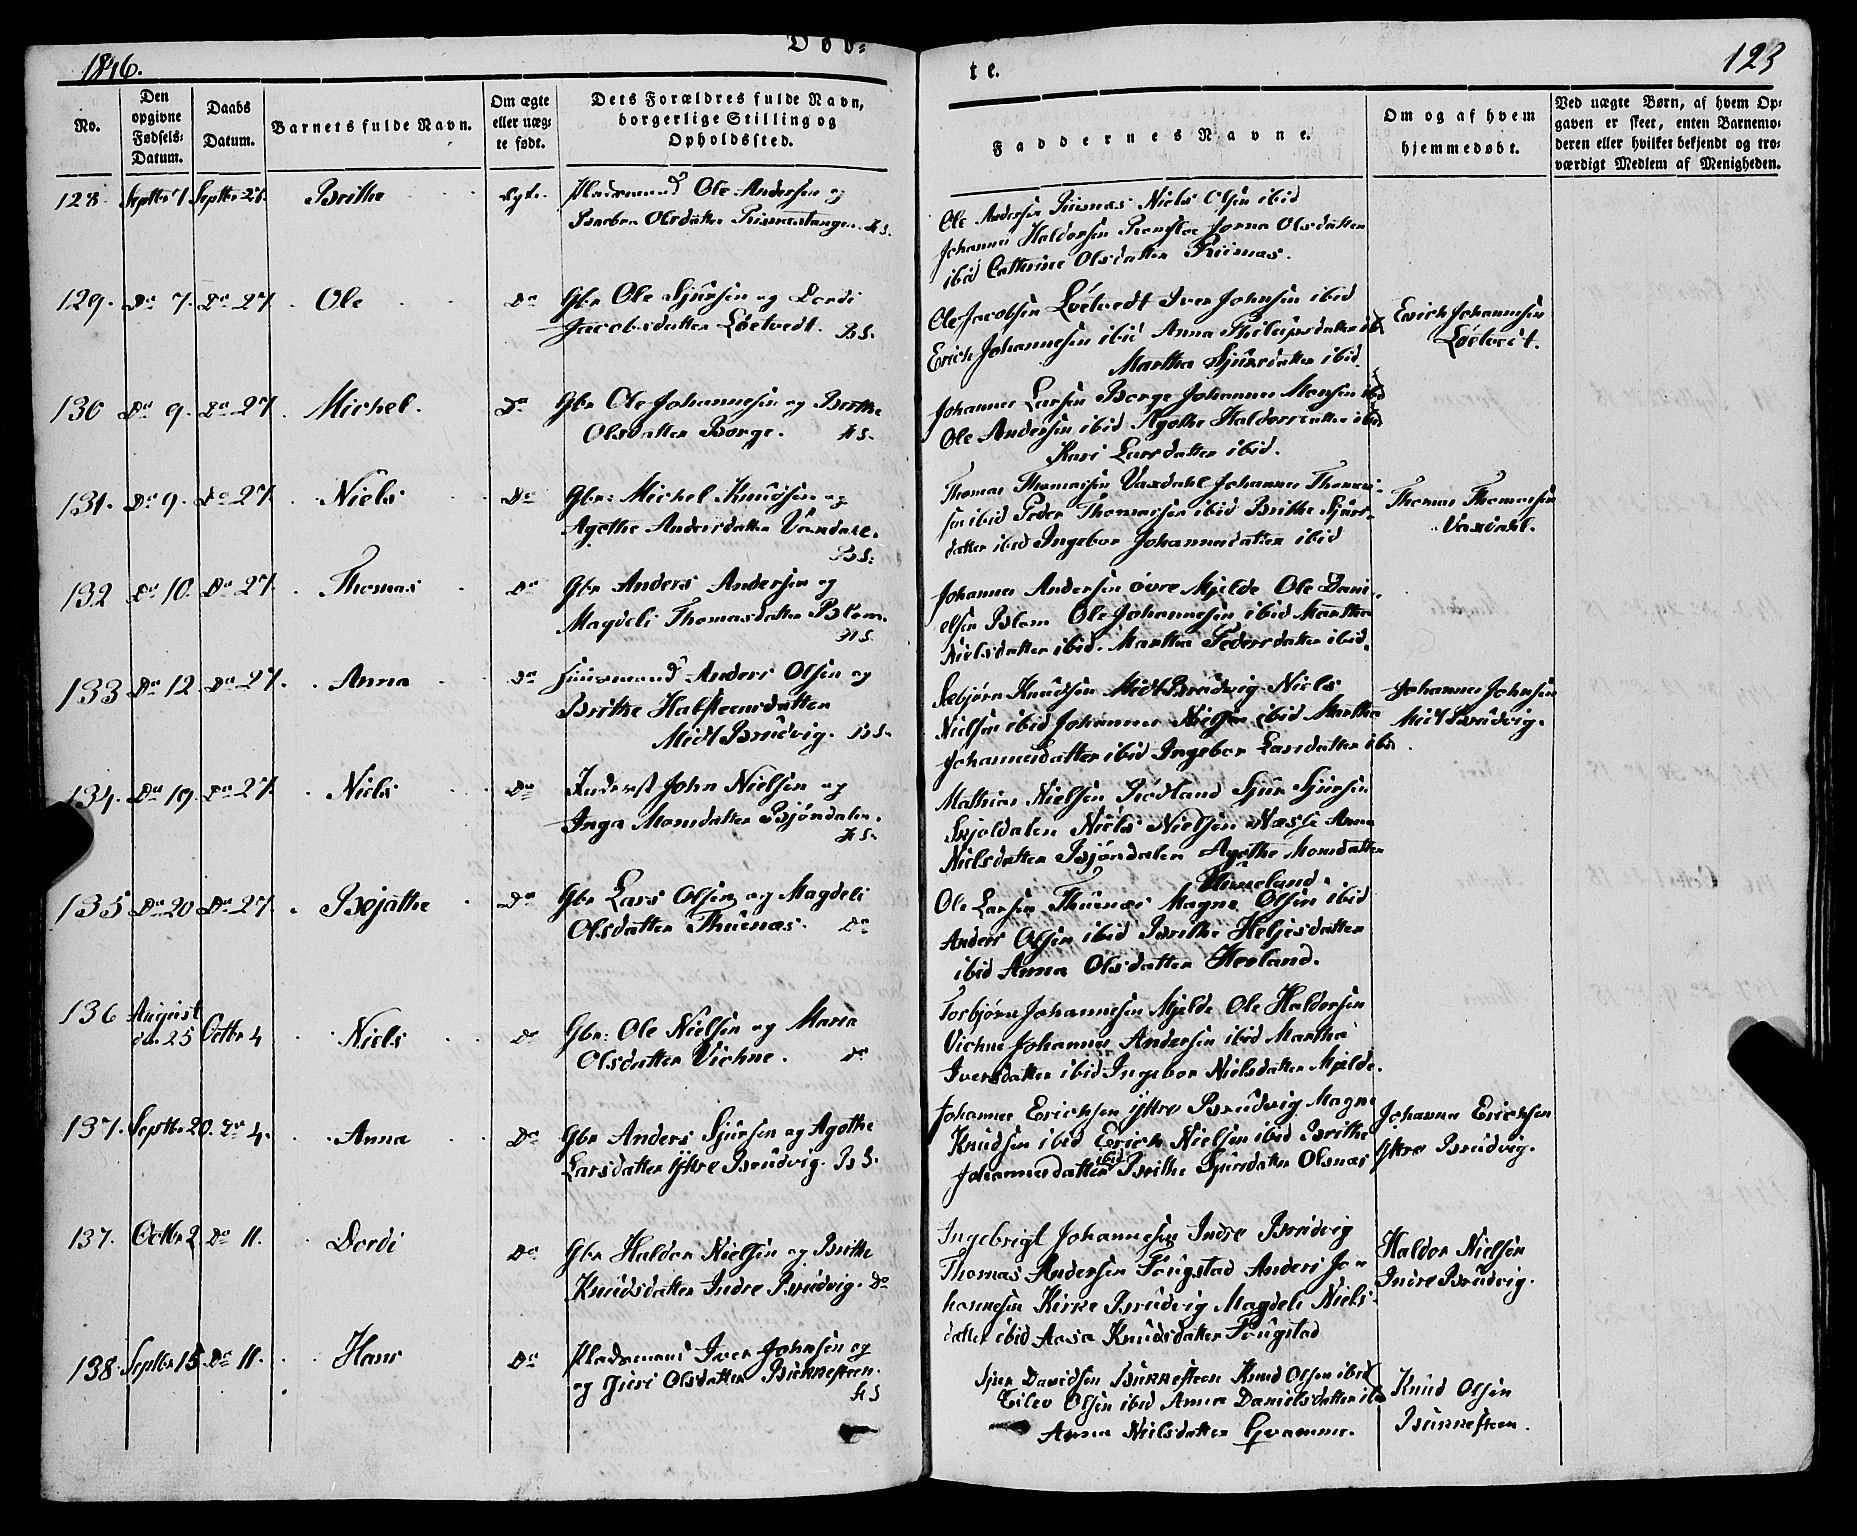 1846.
Døb-
te.
123
No.
Den
opgivne
Fødsels-
Datum.
Daabs
Datum.
Barnets fulde Navn.
Om ægte
eller uæg-
te født.
Dets Forældres fulde Navn,
borgerlige Stilling og
Opholdssted.
Faddernes Navne.
Om og af hvem
hjemmedøbt.
Ved uægte Børn, af hvem Op-
gaven er skeet, enten Barnemo-
deren eller hvilket bekjendt og tro-
værdigt Medlem af Menigheden.
128. Septbr 7. Septbr 27. Brithe Ægte. Pladsmand Ole Andersen og
Barbra Olsdatter HS.
Ole Andersen Niels Olsen ibid
Johannes Haldorsen Olsdatter
ibid Cathrine Olsdatter
129. Do 7. Do 27. Ole Do Gbr Ole Sjursen og Dordi
Jacobsdatter Løetvedt. BS.
Ole Jacobsen Løetvedt Iver Johnsen ibid
Erich Johannesen ibid Anna Philipsdatter ibid
Martha Sjursdatter ibid.
Erich Johannesen
Løetvedt.
130 Do 9. Do 27. Michel. Do Gbr Ole Johannesen og Berthe
Olsdatter Borge. HS.
Johannes Larsen Borge Johannes Monsen ibid
Ole Andersen ibid Agathe Haldorsdatter ibid
Kari Larsdatter ibid.
131. Do 9. Do 27. Niels Do Gbr: Michel Knudsen og
Agathe Andersdatter Vaxdale.
BS.
Thomas Thomasen Vaxdahl Johannes Thoma-
sen ibid Peder Thomasen ibid Brithe Sjurs-
datter ibid Ingebor Johannesdatter ibid
Thomas Thomasen
Vaxdahl.
132 Do 10. Do 27. Thomas Do Gbr Anders Andersen og
Magdeli Thomasdatter Blom.
HS.
Johannes Andersen øvre Mjelde Ole Dani-
elsen Blom Ole Johannesen ibid Martha
Nielsdatter ibid. Martha Pedersdatter ibid.
133 Do 12 Do 27. Anna Do Huusmand Anders Olsen og
Brithe Halsteensdatter
Midt Brudvig. BS.
Knudsen Midt Brudvig Niels
Nielsen ibid Johannes Nielsen ibid Martha
Johannesdatter ibid Ingebor Larsdatter ibid.
Johannes Johnsen
Midt Brudvig.
134. Do 19. Do 27. Niels Do Inderst John Nielsen og
Inga Monsdatter Bjørndalen.
HS.
Mathias Nielsen Rødland Sjur Sjursen
Skjoldalen Niels Nielsen Næsse Anna
Nielsdatter Bjørndalen Agathe Monsdatter
135 Do 20 Do 27 Do Gbr Lars Olsen og Magdeli
Olsdatter Thuenæs. Do
Ole Larsen Thuenæs Magne Olsen ibid
Anders Olsen ibid Brithe Helgesdatter
ibid Anna Olsdatter Herland.
136 August
d. 25 Octbr 4 Niels Do Gbr: Ole Nielsen og Maria
Olsdatter Vichne. Do
Torbjørn Johannesen Mjelde Ole Haldorsen
Vichne Johannes Andersen ibid Martha
Iversdatter ibid Ingebor Nielsdatter Mjelde.
137. Septbr 20. Do 4. Anna Do Gbr Anders Sjursen og Agathe
Larsdatter Ystre Brudvig. BS.
Johannes Erichsen Ystre Brudvig Magne
Knudsen ibid Erich Nielsen ibid Brithe
Johannesdatter ibid Brithe Sjursdatter Olsnæs
Johannes Erichsen
Ystre Brudvig.
137. Octbr 2 Do 11. Dordi Do Gbr Haldor Nielsen og Brithe
Knudsdatter Indre Brudvig. Do
Ingebrigt Johannesen Indre Brudvig
Thomas Andersen Fougstad Anders Jo-
hannesen Kirke Brudvig Magdeli Niels-
datter ibid Aasa Knudsdatter Fougstad
Haldor Nielsen
Indre Brudvig.
138 Septbr 15 Do 11. Hans Do Pladsmand Iver Johnsen og
og Guri Olsdatter
HS
Sjur Davidsen Knud Olsen ibid
Eilev Olsen ibid Anna Danielsdatter ibid
Anna Nielsdatter Gramme.
Knud Olsen